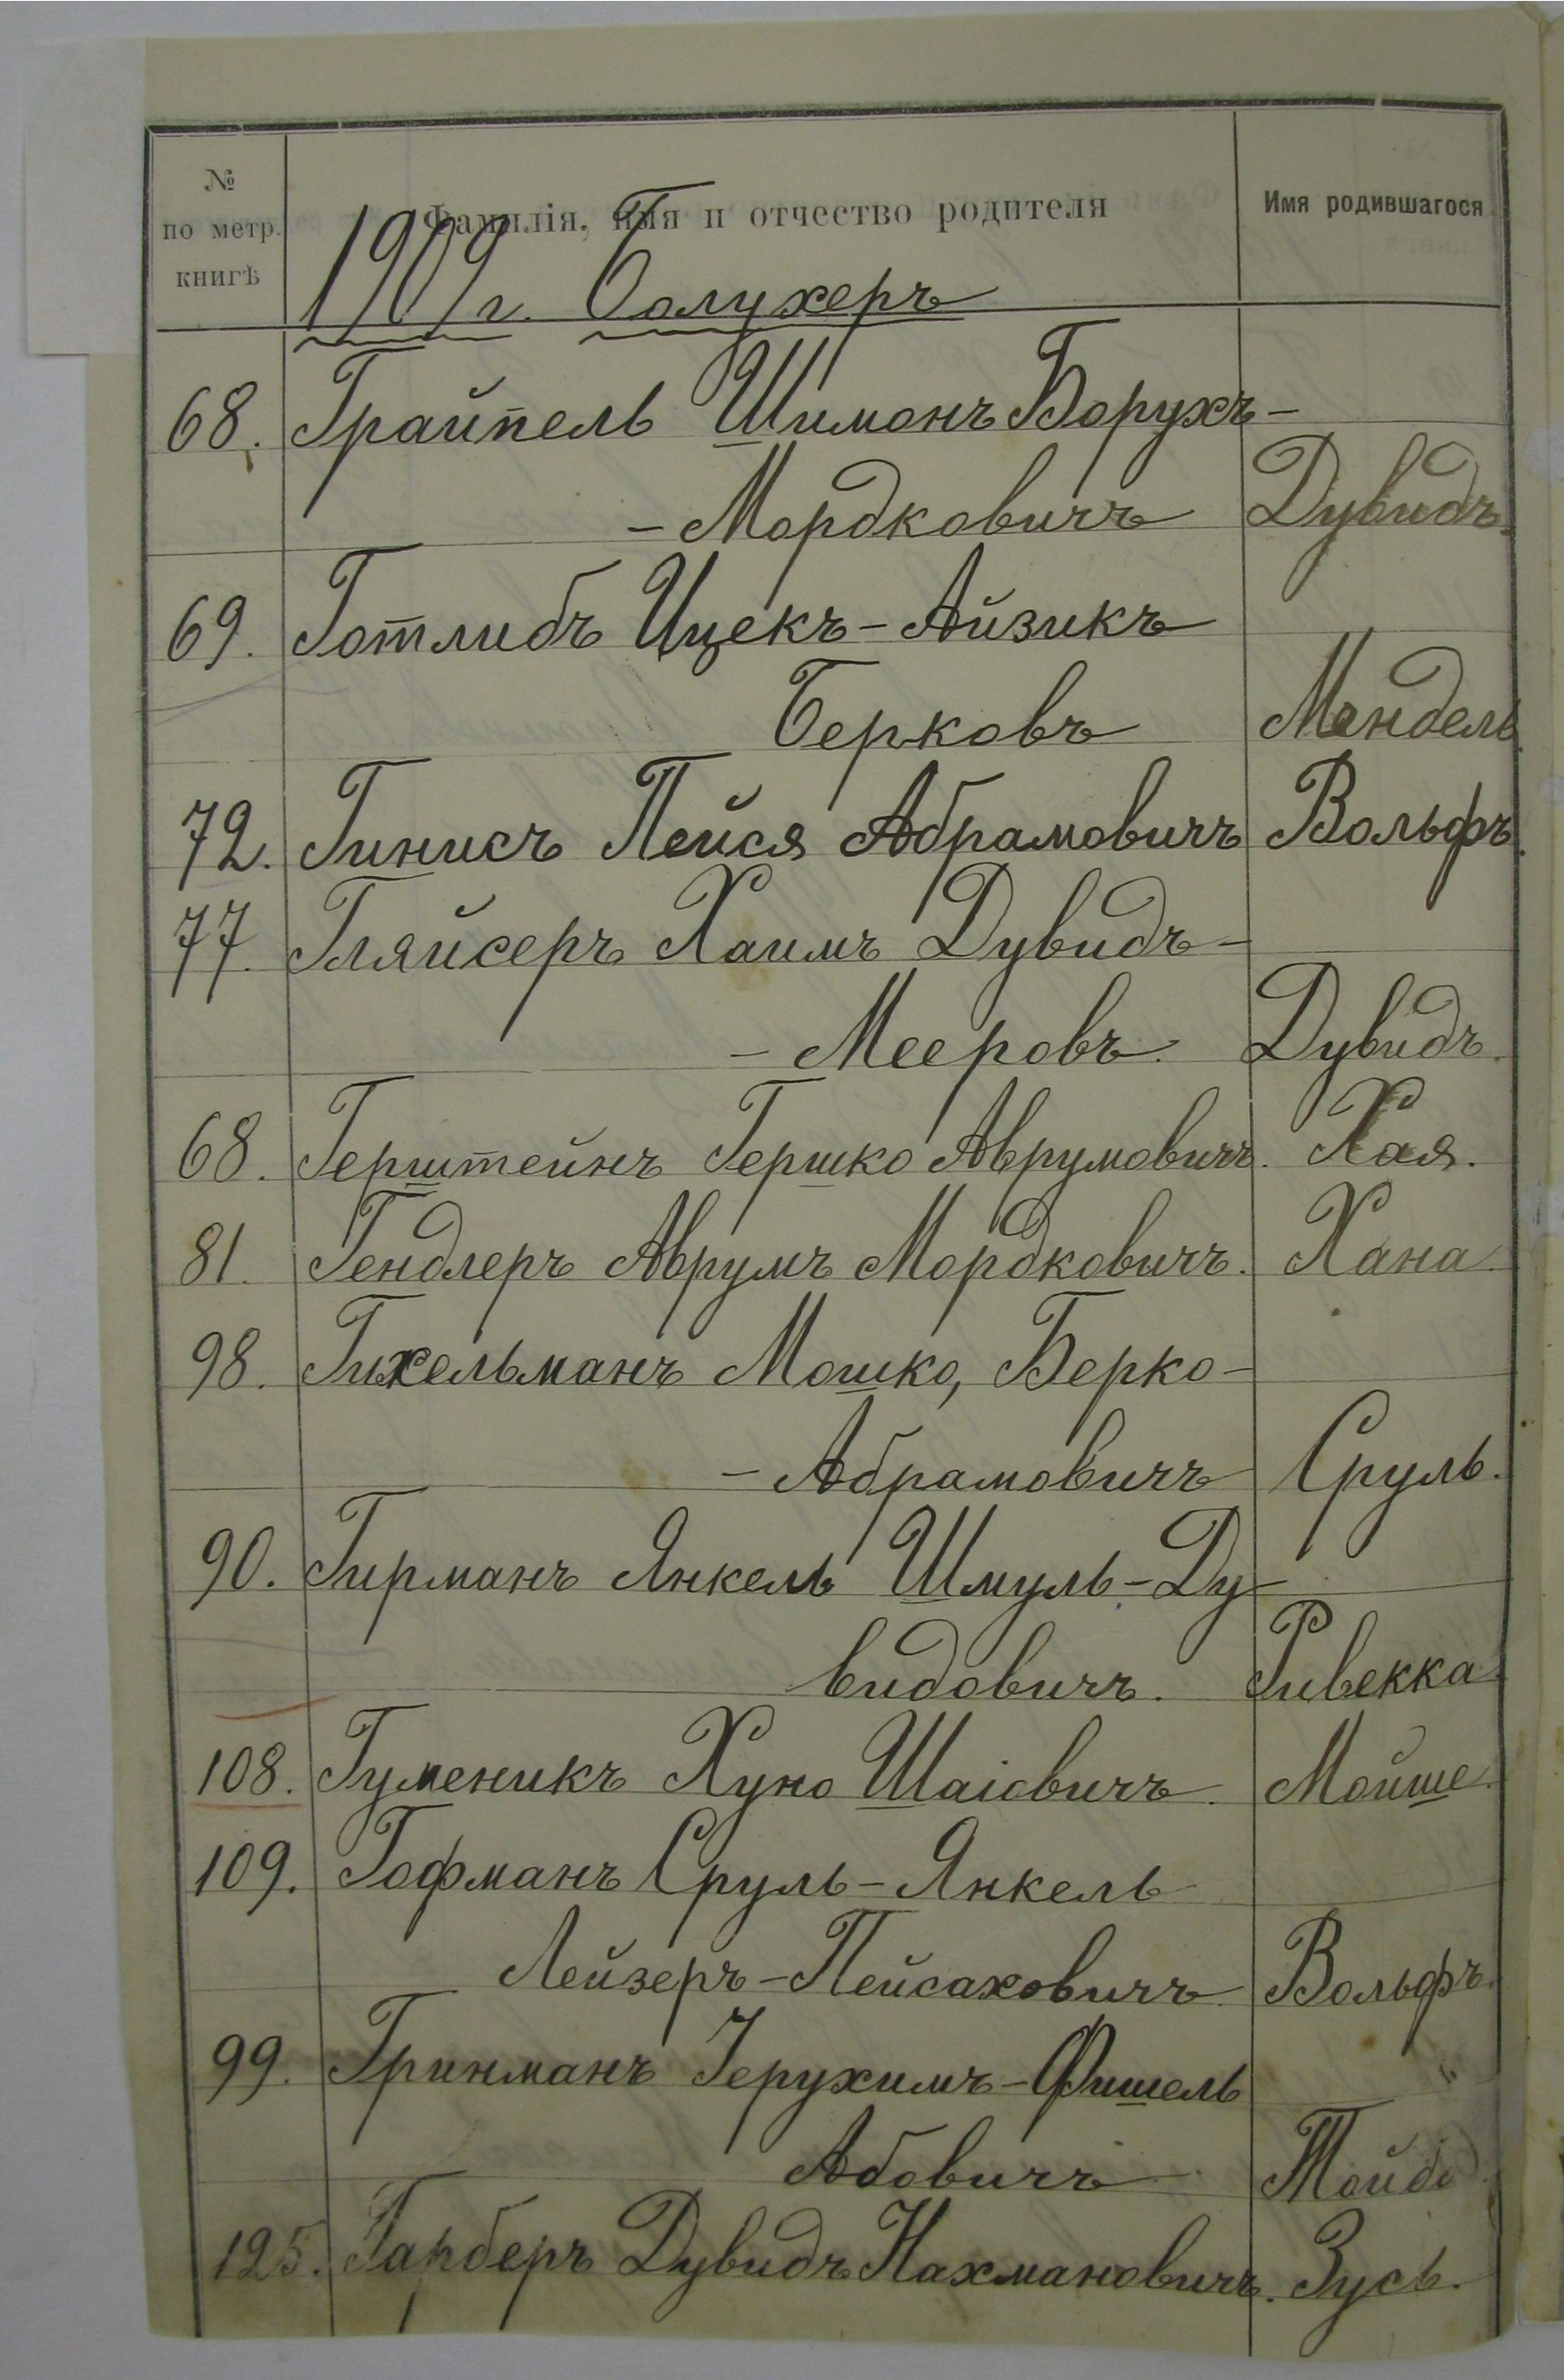 № по метр. книгѣ
Фамилія, имя и отчество родителя
Имя родившагося
1909 г. Болухеръ
68. Грайпель Шимонъ Борухъ-
-Мордковичъ Дувидъ.
69. Готлибъ Ицекъ-Айзикъ
Берковъ Мендель.
72. Гинисъ Пейся Абрамовичъ Вольфъ.
77. Гляйсеръ Хаимъ Дувидъ-
-Мееровъ. Дувидъ.
68. Герштейнъ Гершко Аврумовичъ. Хая.
81. Гендлеръ Аврумъ Мордковичъ. Хана.
98. Гихельманъ Мошко, Берко-
-Абрамовичъ Сруль.
90. Гирманъ Янкель Шмуль-Ду-
видовичъ. Ривекка.
108. Гуменикъ Хуно Шаіовичъ. Мойше.
109. Гофманъ Сруль-Янкель
Лейзеръ-Пейсаховичъ. Вольфъ.
99. Гринманъ Іерухимъ-Фишель
Абовичъ Тойба
125. Гарберъ Дувидъ Нахмановичъ. Зусь.